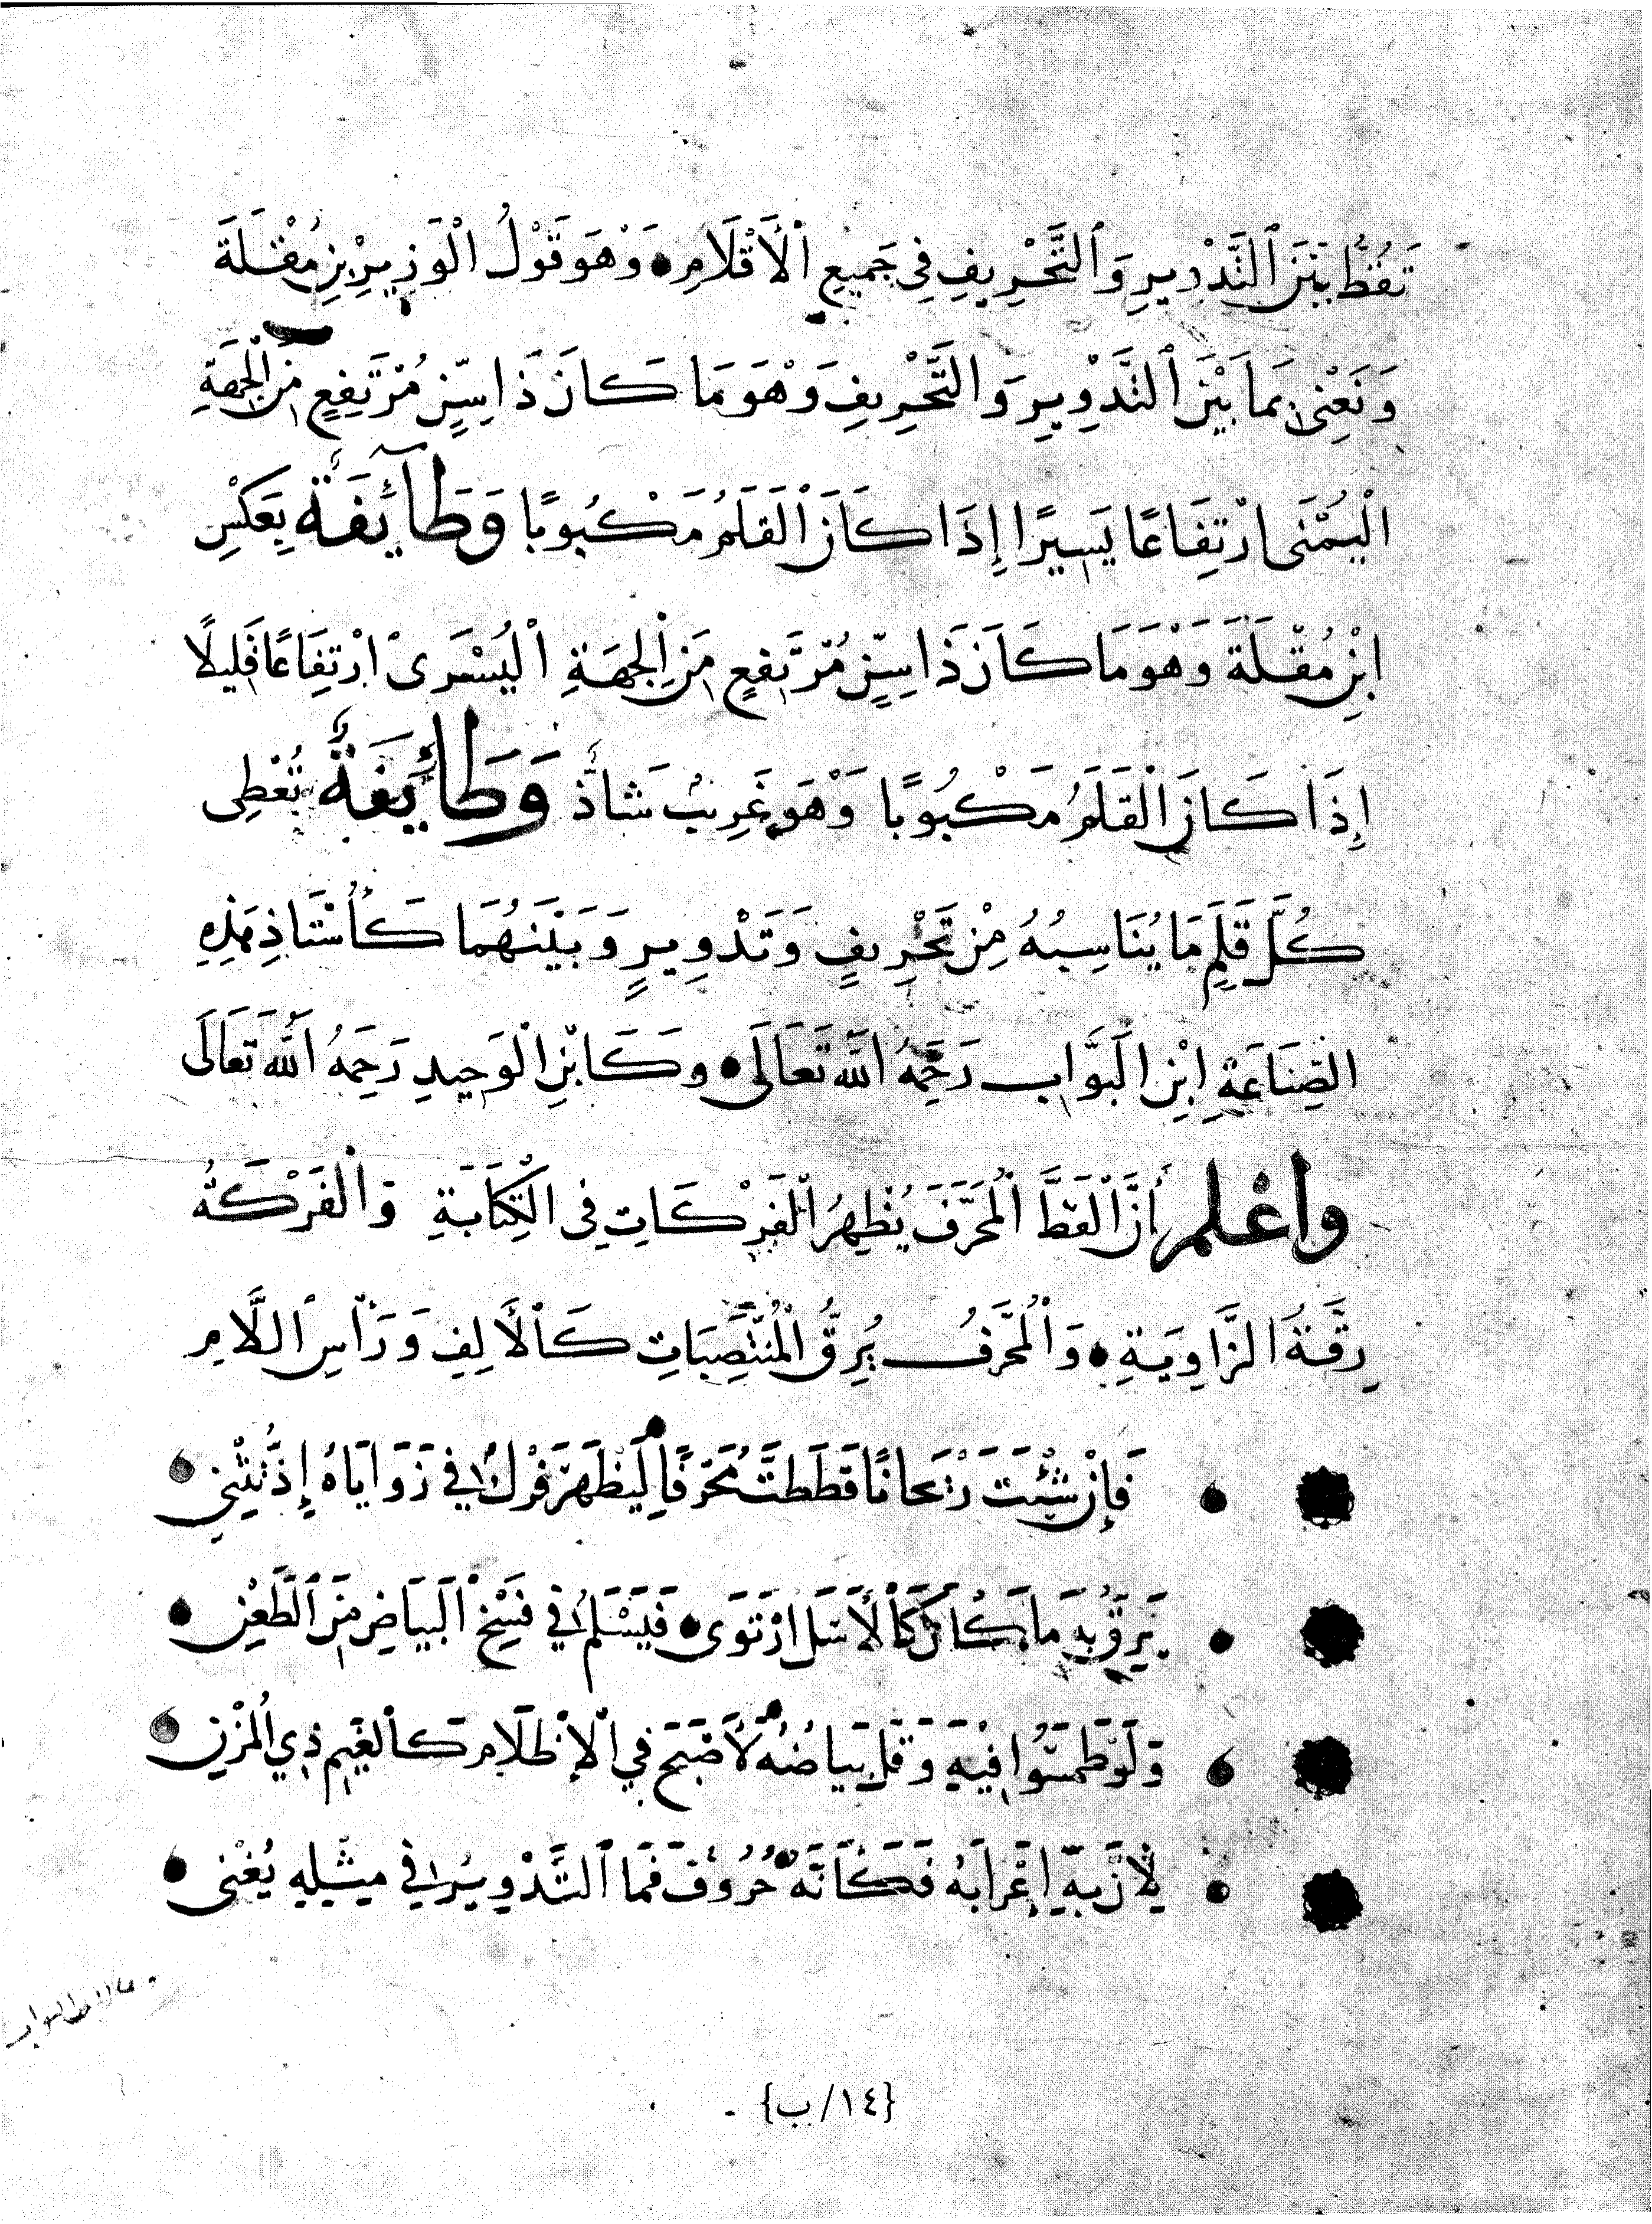 تَقُطُّ بَيْنَ ٱلتَّدْوِيرِ وَٱلتَّحْرِيفِ فِي جَمِيعِ ٱلْأَقْلَامِ • وَهْوَ قَوْلُ الْوَزِيرِ بْنِ مُقْلَةَ
وَنَعْنِى بِمَا بَيْنَ ٱلتَّدْوِيرِ وَالتَّحْرِيفِ وَهْوَ مَا كَانَ ذَا سِنٍّ مُرْتَفِعٍ مِنَ الْجِهَةِ
الْيُمْنَى ارْتِفَاعًا يَسِيرًا إِذَا كَانَ الْقَلَمُ مَكْبُوبًا وَطَآئِفَةٌ بِعَكْسِ
ابْنِ مُقْلَةَ وَهْوَ مَا كَانَ ذَا سِنٍّ مُرْتَفِعٍ مِنَ الْجِهَةِ الْيُسْرَى ارْتِفَاعًا قَلِيلًا
إِذَا كَانَ الْقَلَمُ مَكْبُوبًا وَهْوَ غَرِيبٌ شَاذٌّ وَطَائِفَةٌ تُعْطِى
كُلَّ قَلَمٍ مَا يُنَاسِبُهُ مِنْ تَحْرِيفٍ وَتَدْوِيرٍ وَبَيْنَهُمَا كَأُسْتَاذِ هَذِهِ
الصِّنَاعَةِ ابْنِ الْبَوَّابِ رَحِمَهُ اللَّه تَعَالَى • وَكَابْنِ الْوَحِيدِ رَحِمَهُ اللَّه تَعَالَى
وَاعْلَمْ أَنَّ الْقَطَّ الْمُحَرَّفَ يُظْهِرُ الْفَرْكَاتِ فِى الْكِتَابَةِ وَالْفَرْكَةُ
رِقَّةُ الزَّاوِيَةِ • وَالْمُحَرَّفُ يُرِقُّ الْمُنْتَصِبَاتِ كَالْأَلِفِ وَرَأْسِ اللَّامِ
فَإِنْ شِئْتَ رَيْحَانًا قَطَطْتَ مُحَرَّفًا لِيَظْهَرَ فَرْكٌ فِي زَوَايَاهُ إِذْ تَثْنِي
يَرِقُّ بِهِ مَا كَانَ كَالْأَسَلِ ارْتَوَى • فَيَسْلَمُ فِي فَسْخِ الْبَيَاضِ مِنَ الطَّعْنِ •
وَلَوْ طَمَسُوا فِيهِ وَقَلَّ بَيَاضُهُ لَأَصْبَحَ فِي الْإِظْلَامِ كَالْغَيْمِ ذِي الْمُزْنِ
لِأَنَّ بِهِ إِعْرَابَهُ فَكَأَنَّهُ حُرُوفٌ فَمَا التَّدْوِيرُ فِي مِثْلِهِ يُغْنِى •
{١٤/ب}